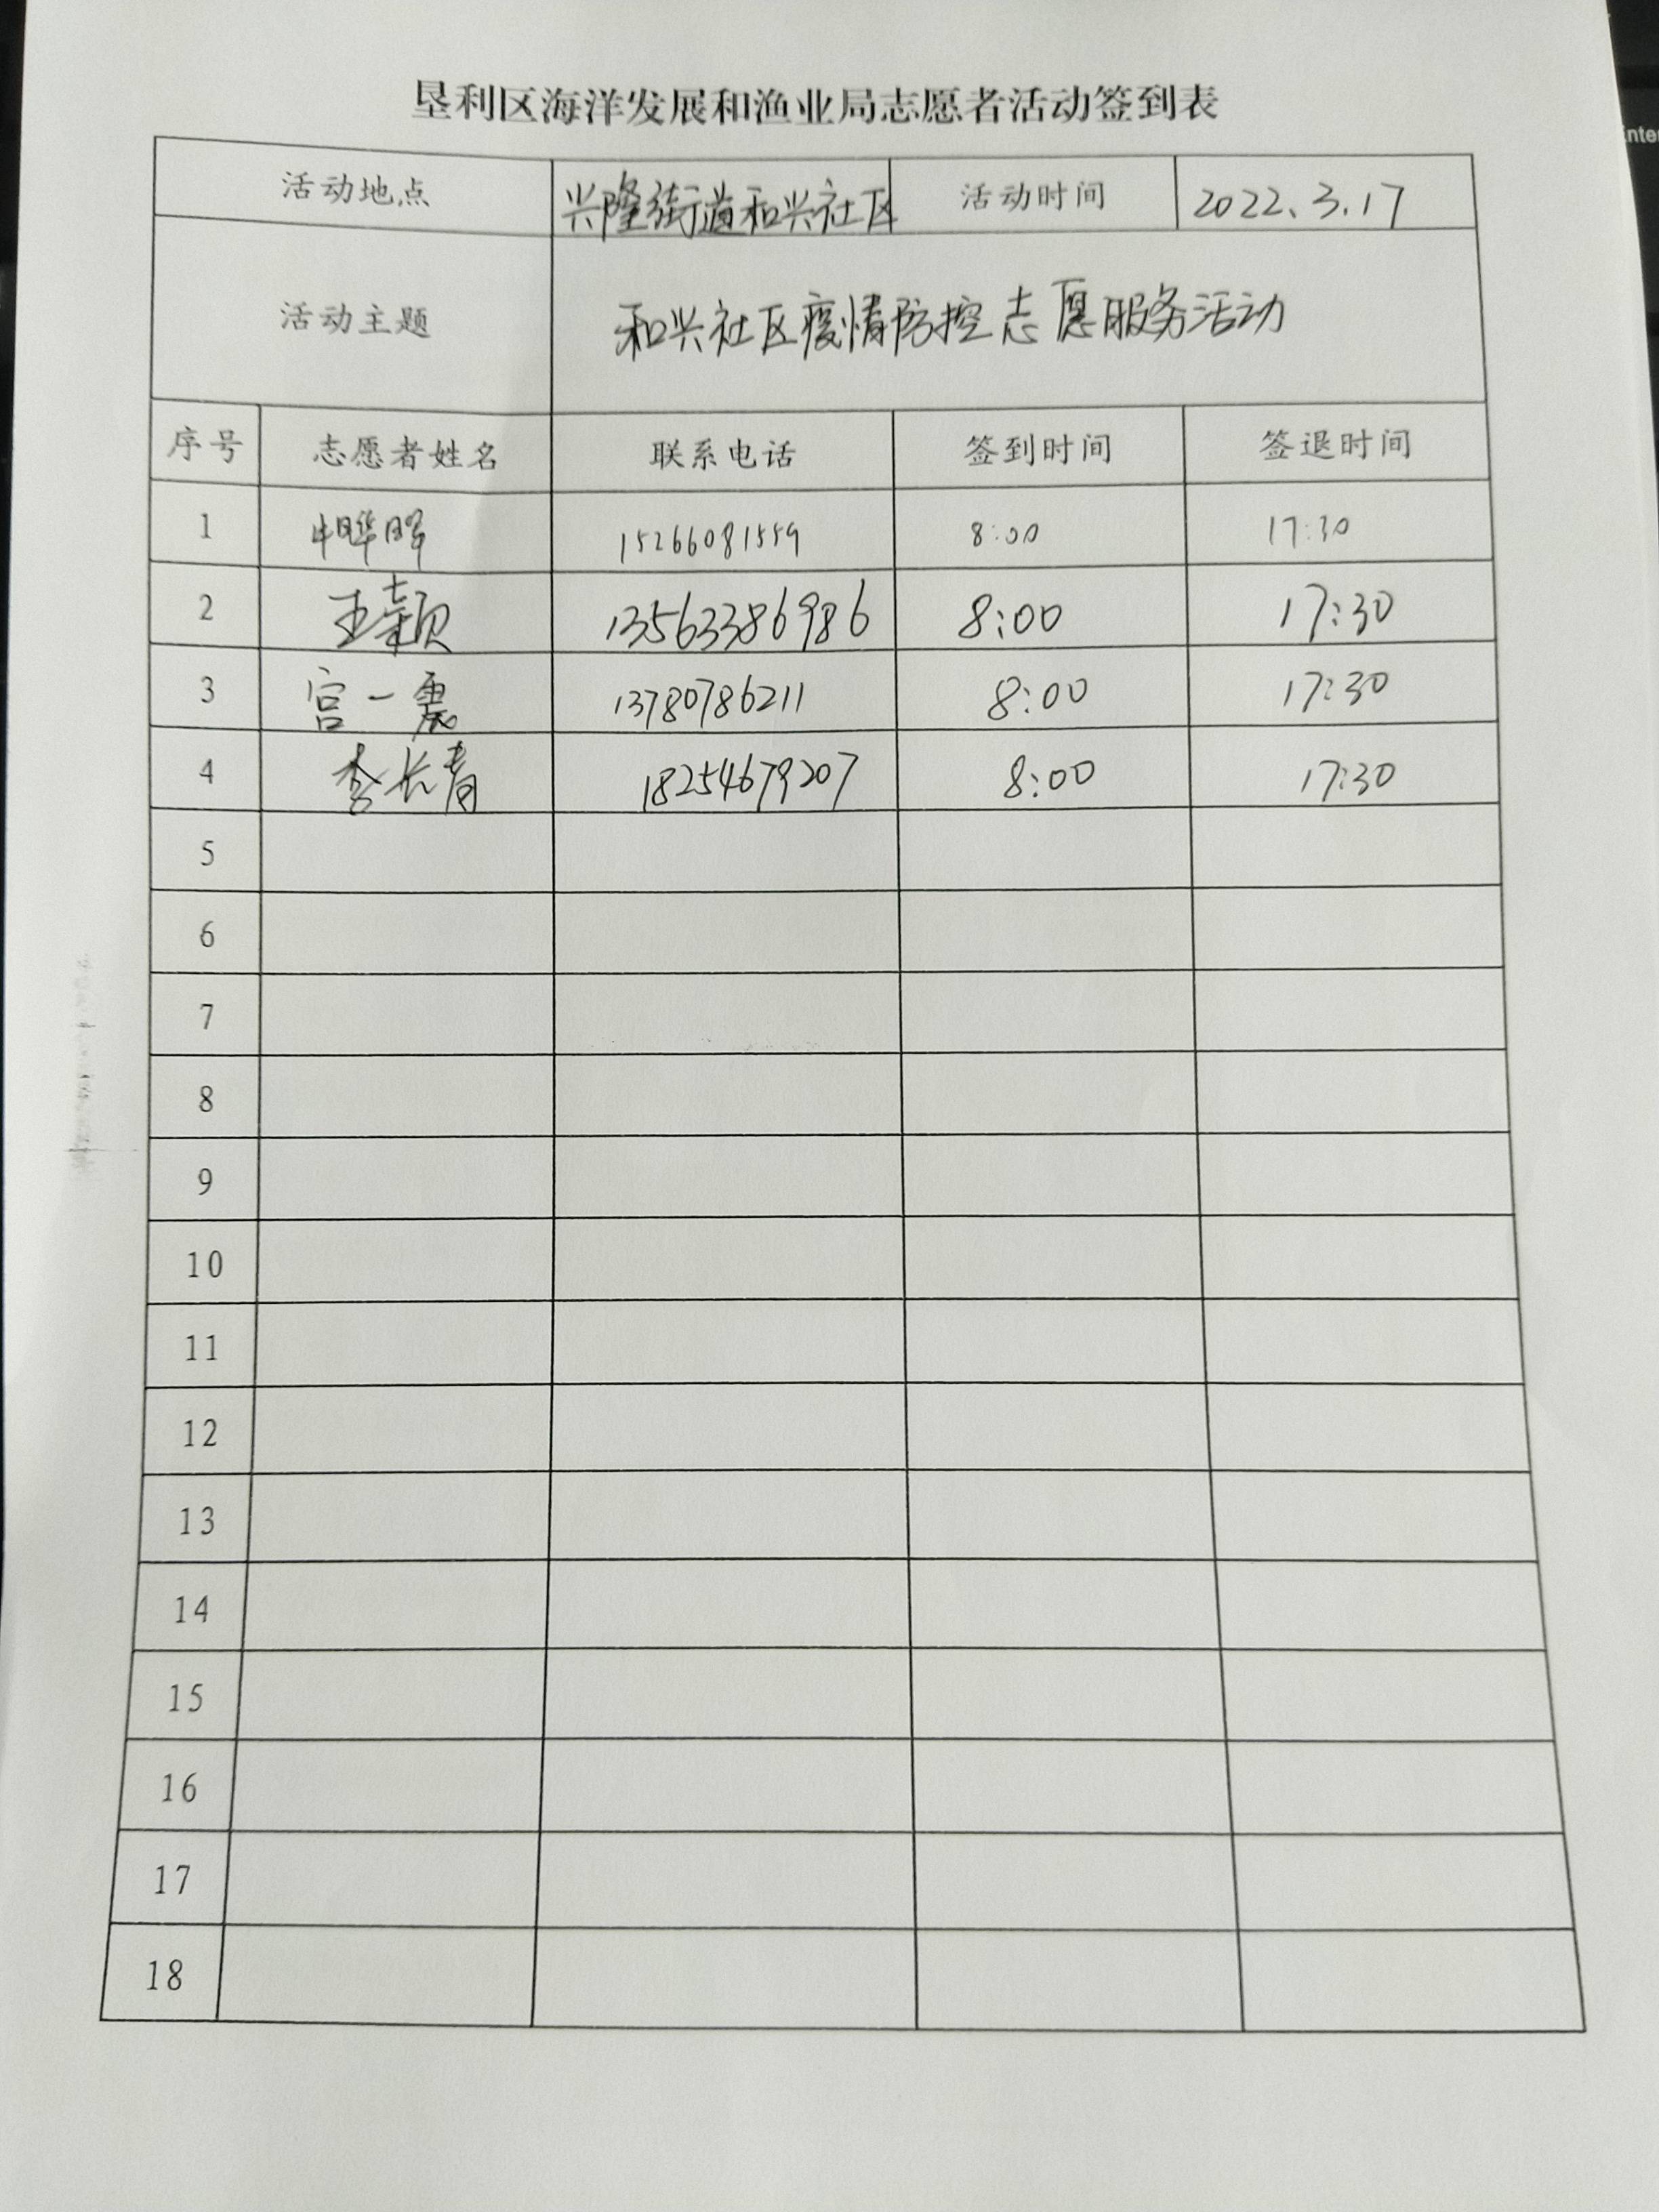 垦利区海洋发展和渔业局志愿者活动签到表
活动地点 兴隆街道和兴社区 活动时间 2022.3.17
活动主题 和兴社区疫情防控志愿服务活动
序号 志愿者姓名 联系电话 签到时间 签退时间
1 15266081559 8:00 17:30
2 王颖 13563386986 8:00 17:30
3 宫一震 13780786211 8:00 17:30
4 李长青 18254679207 8:00 17:30
5
6
7
8
9
10
11
12
13
14
15
16
17
18